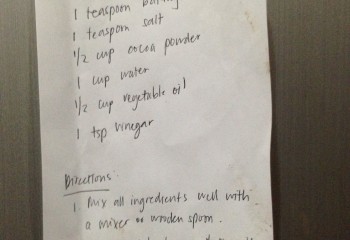 1 teaspoon baking
1 teaspoon salt
1/2 cup cocoa powder
1 cup water
1/2 cup vegetable oil
1 tsp vinegar
Directions:
1. Mix all ingredients well with
a mixer or wooden spoon.